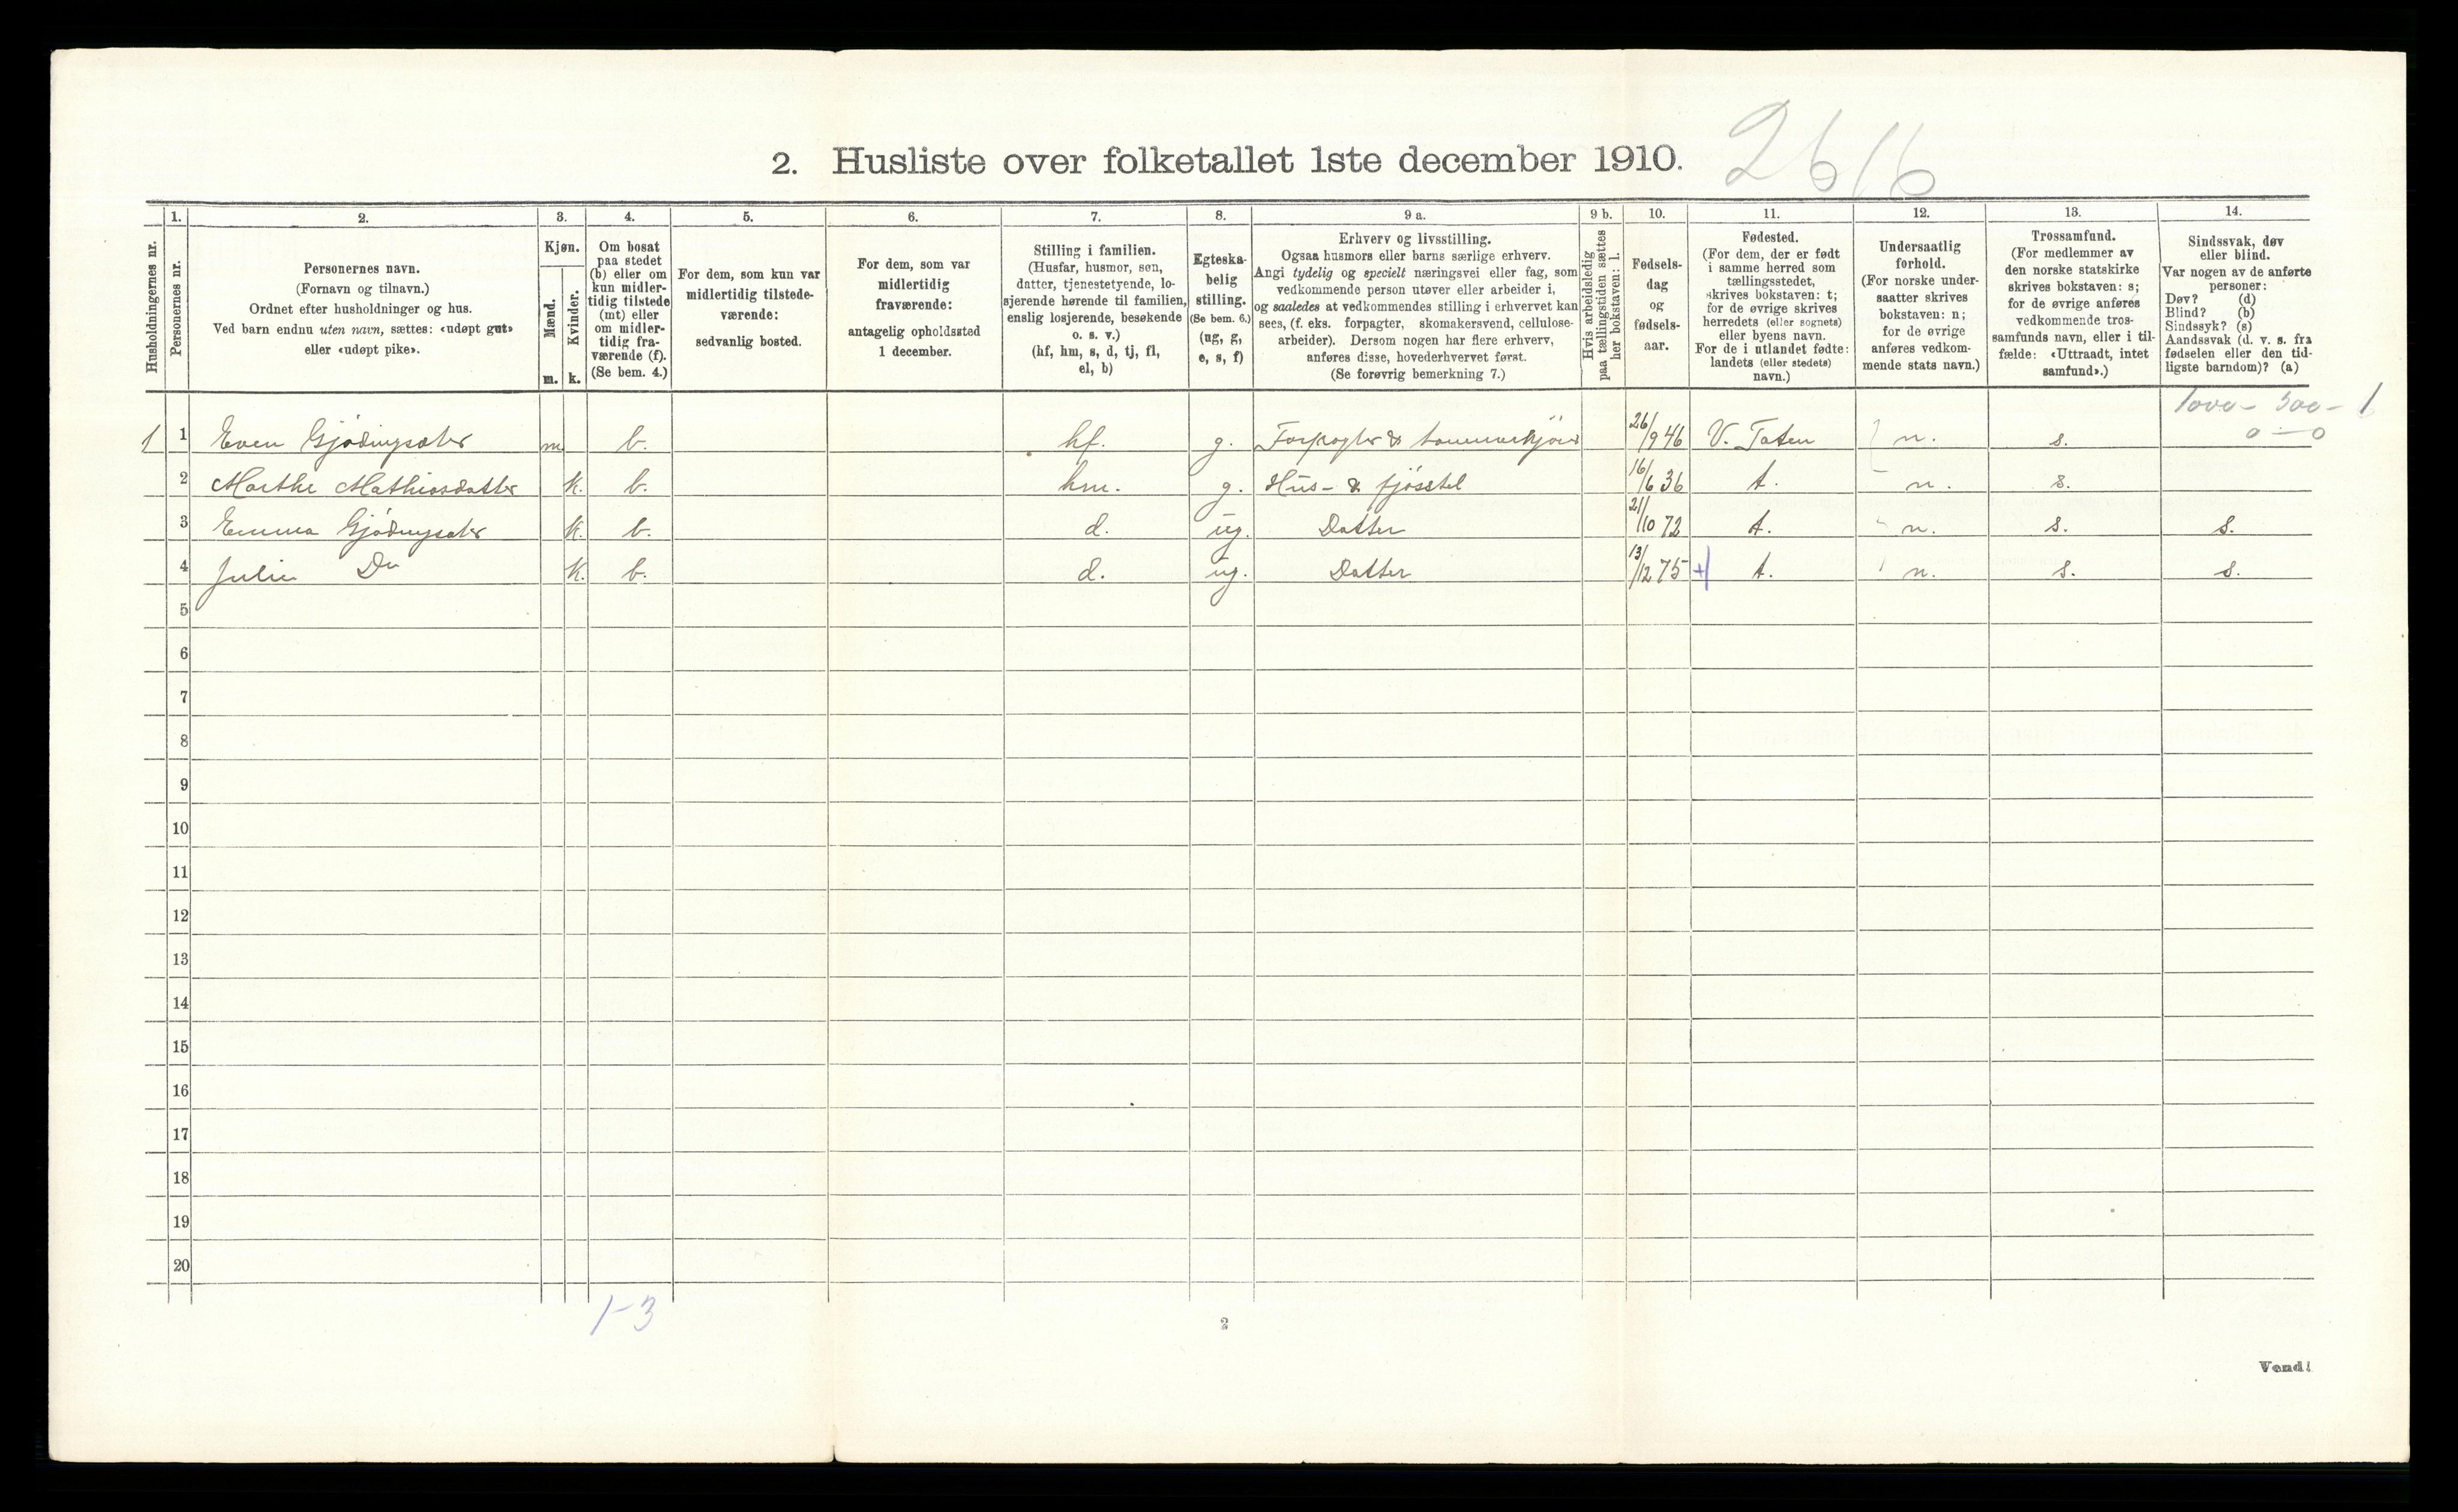 2. Husliste over folketallet 1ste december 1910.
2616
Husholdningernes nr.
1.
Personernes nr.
2.
Personernes navn.
(Fornavn og tilnavn.)
Ordnet efter husholdninger og hus.
Ved barn endnu uten navn, sættes: «udøpt gut»
eller «udøpt pike».
3.
Kjøn.
Mænd.
Kvinder.
m. k.
4.
Om bosat
paa stedet
(b) eller om
kun midler-
tidig tilstede
(mt) eller
om midler-
tidig fra-
værende (f).
(Se bem. 4.)
5.
For dem, som kun var
midlertidig tilstede-
værende:
sedvanlig bosted.
6.
For dem, som var
midlertidig
fraværende:
antagelig opholdssted
1 december.
7.
Stilling i familien.
(Husfar, husmor, søn,
datter, tjenestetyende, lo-
sjerende hørende til familien,
enslig losjerende, besøkende
o. s. v.)
(hf, hm, s, d, tj, fl,
el, b)
8.
Egteska-
belig
stilling.
(Se bem. 6.)
(ug, g,
e, s, f)
9 a.
Erhverv og livsstilling.
Ogsaa husmors eller barns særlige erhverv.
Angi tydelig og specielt næringsvei eller fag, som
vedkommende person utøver eller arbeider i,
og saaledes at vedkommendes stilling i erhvervet kan
sees, (f. eks. forpagter, skomakersvend, cellulose-
arbeider). Dersom nogen har flere erhverv,
anføres disse, hovederhvervet først.
(Se forøvrig bemerkning 7.)
9 b.
Hvis arbeidsledig
paa tællingstiden sættes
her bokstaven: l.
10.
Fødsels-
dag
og
fødsels-
aar.
11.
Fødested.
(For dem, der er født
i samme herred som
tællingsstedet,
skrives bokstaven: t;
for de øvrige skrives
herredets (eller sognets)
eller byens navn.
For de i utlandet fødte:
landets (eller stedets)
navn.)
12.
Undersaatlig
forhold.
(For norske under-
saatter skrives
bokstaven: n;
for de øvrige
anføres vedkom-
mende stats navn.)
13.
Trossamfund.
(For medlemmer av
den norske statskirke
skrives bokstaven: s;
for de øvrige anføres
vedkommende tros-
samfunds navn, eller i til-
fælde: «Uttraadt, intet
samfund».)
14.
Sindssvak, døv
eller blind.
Var nogen av de anførte
personer:
Døv? (d)
Blind? (b)
Sindssyk? (s)
Aandssvak (d. v. s. fra
fødselen eller den tid-
ligste barndom)? (a)
1000 - 300 - 1
0 - 0
1 1 Even Gjødingsæter m. b. hf. g. Forpagter & tømmerkjører 26/9 46 V. Toten n. s.
2 Marthe Mathiasdatter k. b. hm. g. Hus- & fjøsstel 16/6 36 t. n. s.
3 Emma Gjødingsæter k. b. d. ug. Datter 21/10 72 t. n. s. s.
4 Julie Do k. b. d. ug. Datter 13/12 75 + t. n. s. s.
5
6
7
8
9
10
11
12
13
14
15
16
17
18
19
20
1-3
2
Vend!